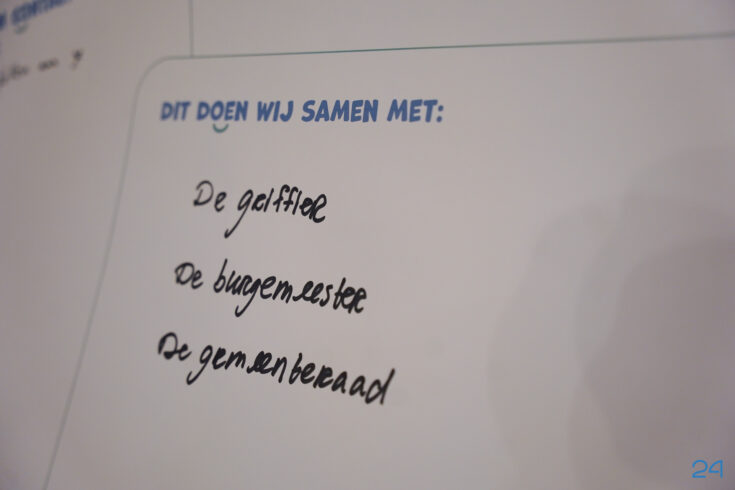 DIT DOEN WIJ SAMEN MET:
De griffier
De burgemeester
De gemeenteraad
24